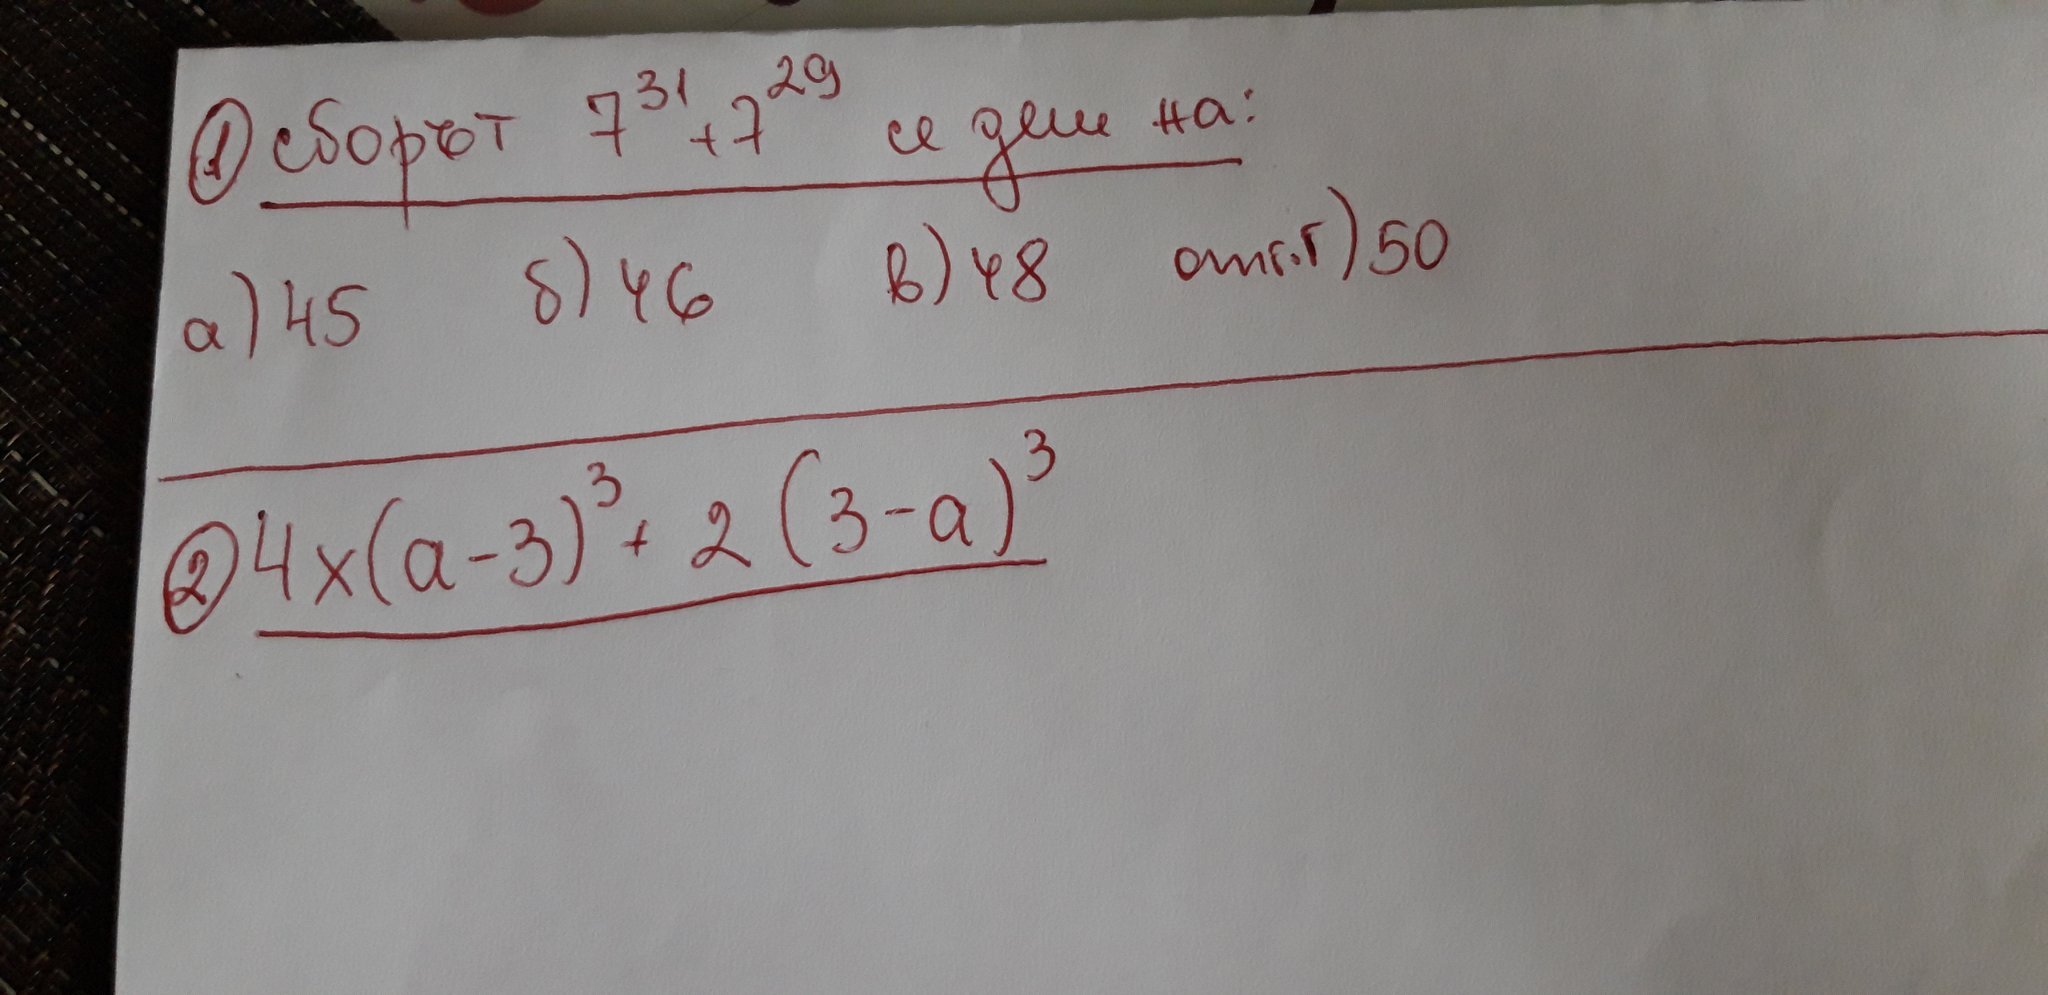 ① сборът 7³¹+7²⁹ се дели на:
а) 45 б) 46 в) 48 отг. г) 50
② 4x(a-3)³+ 2(3-a)³